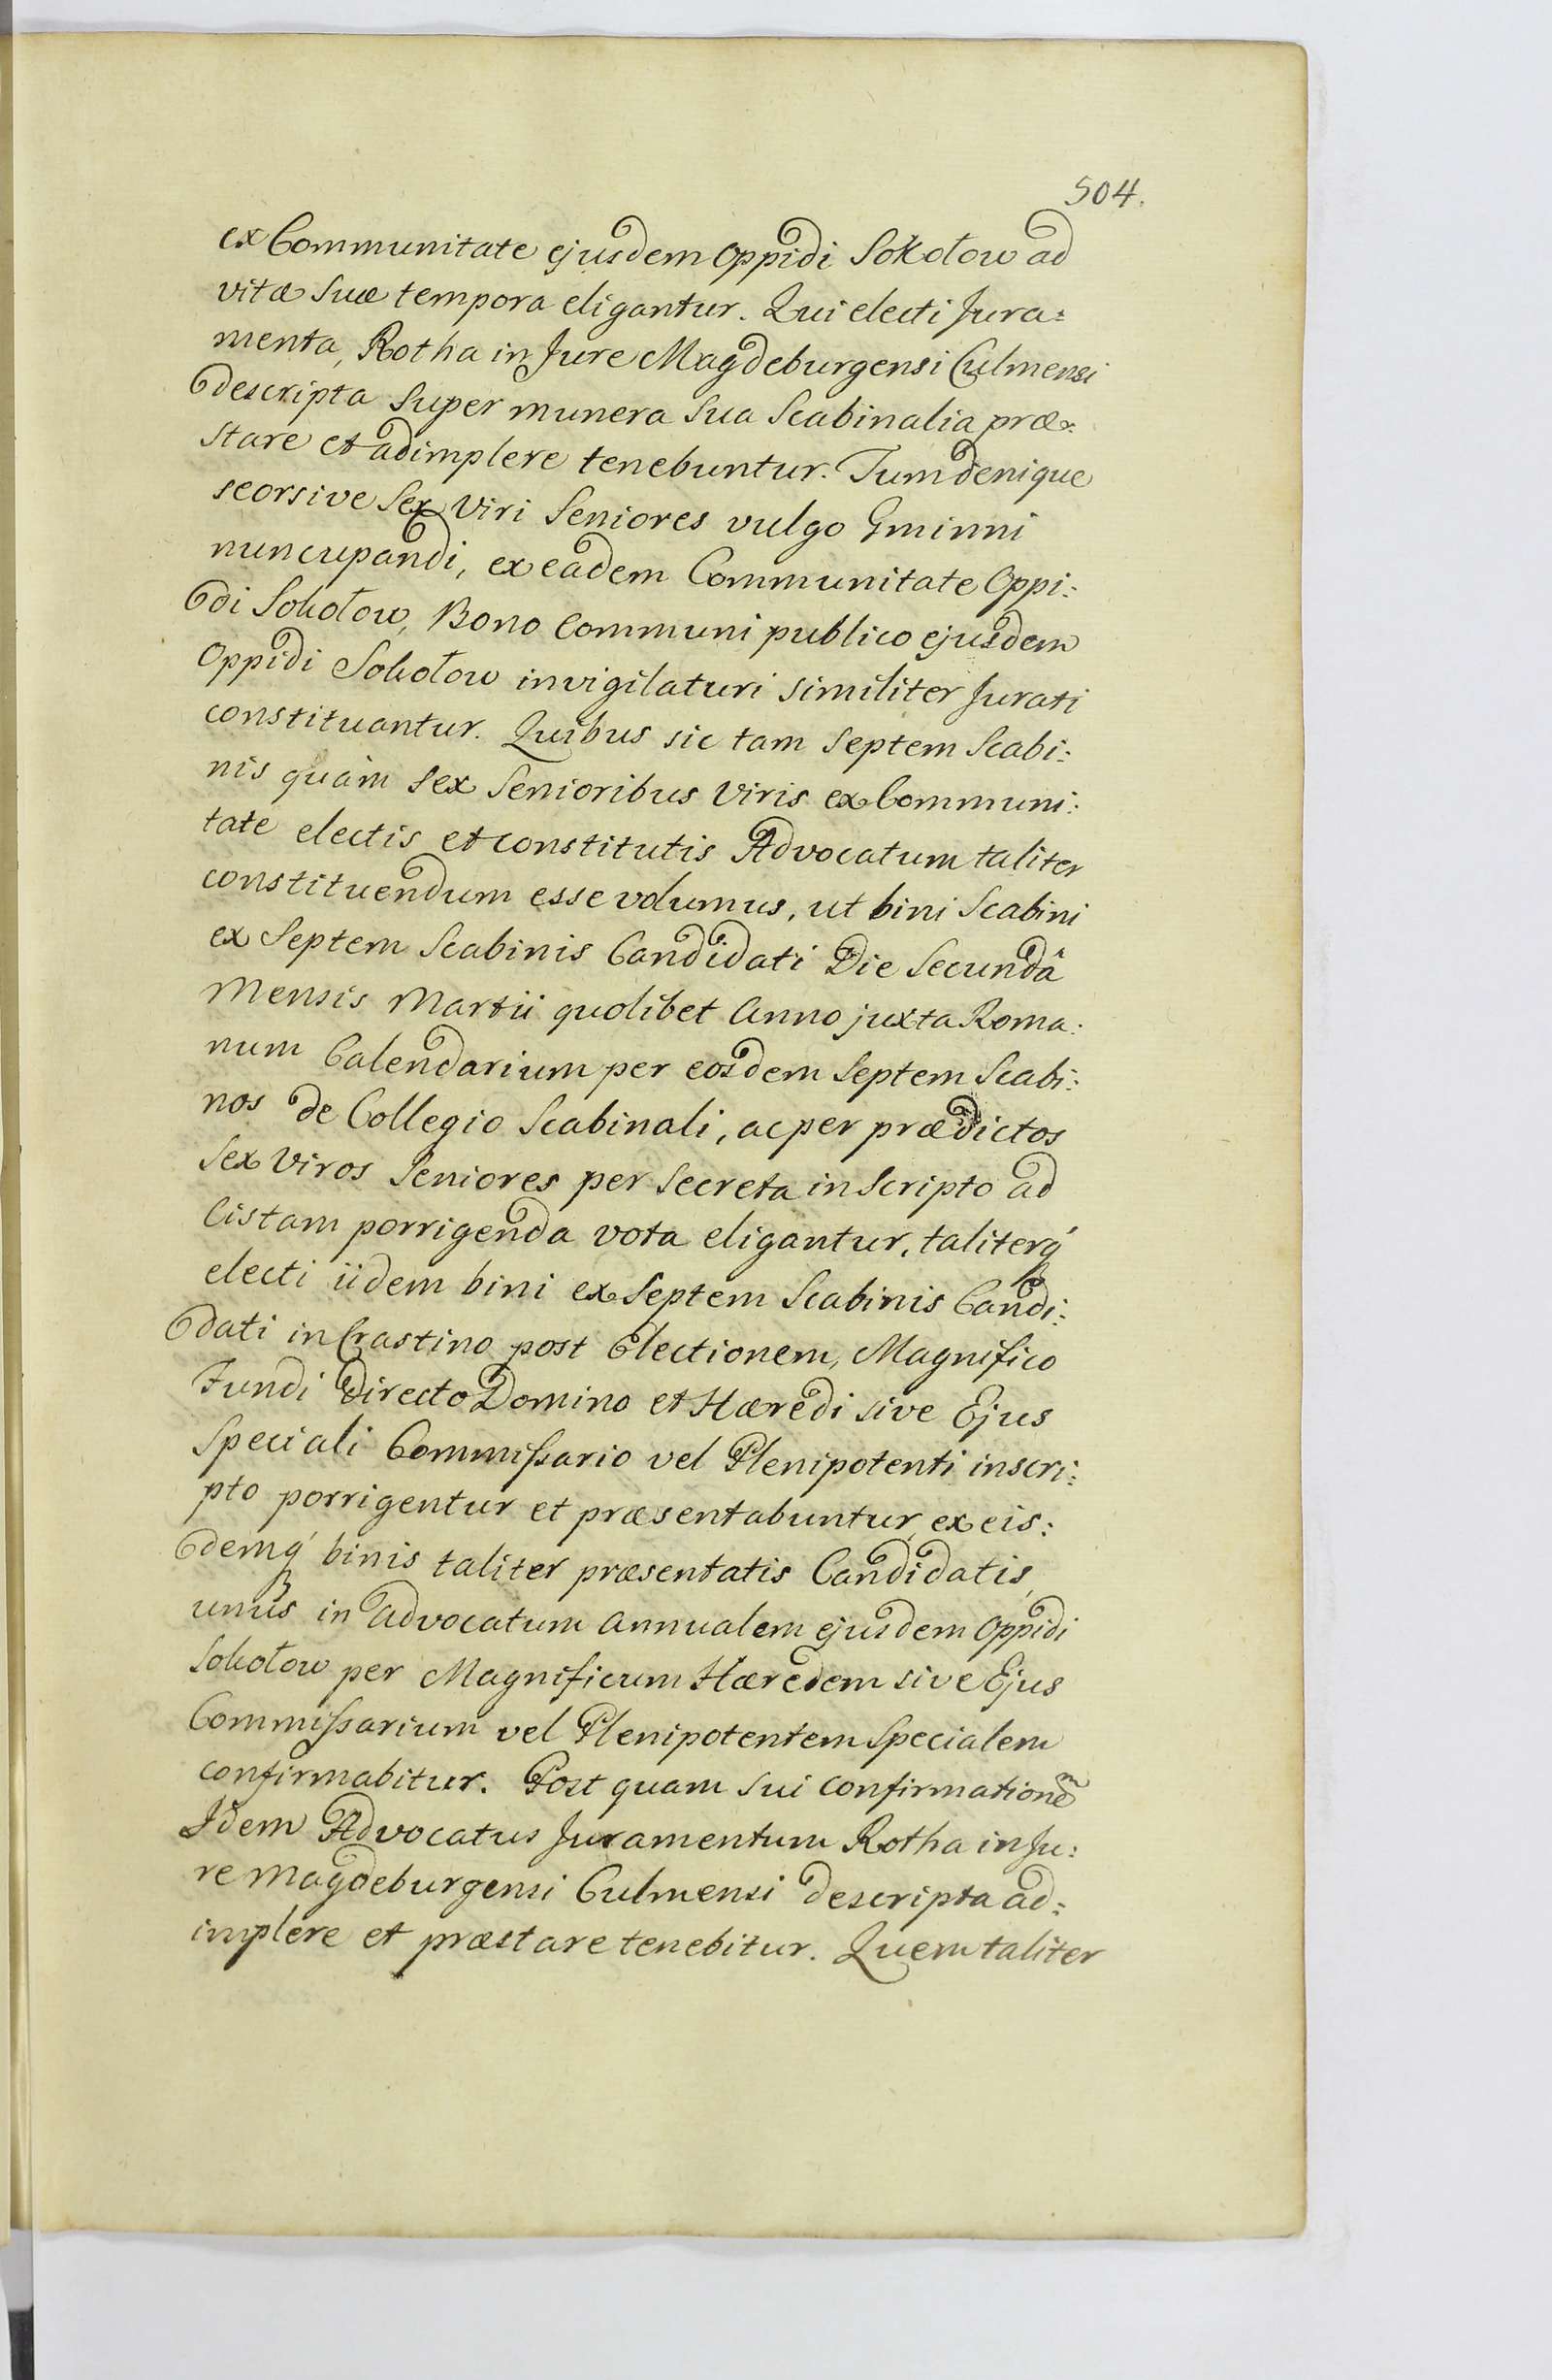 504.
ex Communitate ejusdem Oppidi Sokołow ad
vitæ suæ tempora eligantur. Qui electi Jura:
menta, Rotha in Jure Magdeburgensi Culmensi
descripta super munera sua Scabinalia præ:
stare et adimplere tenebuntur. Tum denique
seorsive Sex Viri Seniores vulgo Gminni
nuncupandi, ex eadem Communitate Oppi:
di Sokołow, Bono Communi publico ejusdem
Oppidi Sokołow invigilaturi similiter Jurati
constituantur. Quibus sic tam Septem Scabi:
nis quàm sex Senioribus Viris ex Communi:
tate electis et constitutis Advocatum taliter
constituendum esse volumus, ut bini Scabini
ex Septem Scabinis Candidati Die Secundâ
Mensis Martii quolibet Anno juxta Roma:
num Calendarium per eosdem Septem Scabi:
nos de Collegio Scabinali, ac per prædictos
Sex Viros Seniores per secreta in Scripto ad
Cistam porrigenda vota eligantur, taliterq́
electi iidem bini ex Septem Scabinis Candi:
dati in Crastino post Electionem, Magnifico
Fundi Directo Domino et Hæredi sive Ejus
Speciali Commissario vel Plenipotenti inscri:
pto porrigentur et præsentabuntur, ex eis:
demq́ binis taliter præsentatis Candidatis,
unus in Advocatum Annualem ejusdem Oppidi
Sokołow per Magnificum Hæredem sive Ejus
Commissarium vel Plenipotentem Specialem
confirmabitur. Post quam sui confirmationem
Idem Advocatus Juramentum Rotha in Ju:
re Magdeburgensi Culmensi descripta ad:
implere et præstare tenebitur. Quem taliter